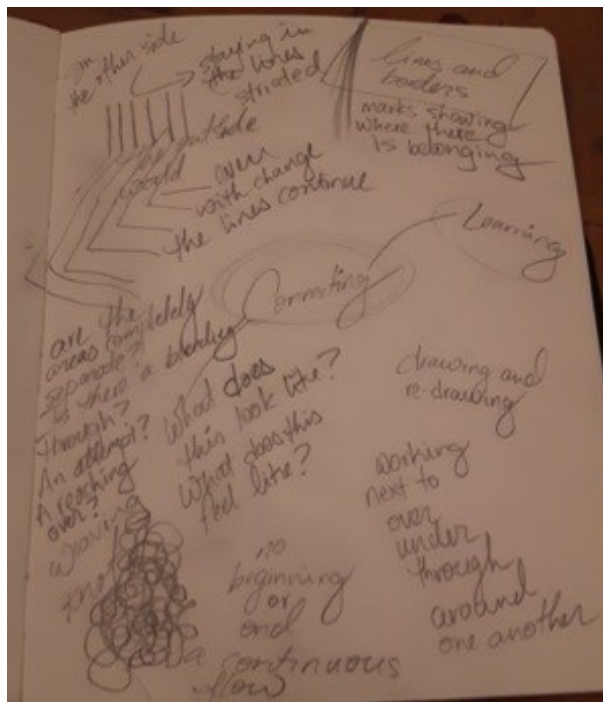 on
the other side
staying in
the lines
striated
lines and
borders
marks showing
where there
is belonging
the outside
world
even
with change
the lines continue
Learning
Connecting
are the
areas completely
separate?
is there a bleeding
through?
An attempt?
A reaching
over?
What does
this look like?
What does this
feel like?
drawing and
re-drawing
working
next to
over
under
through
around
one another
weaving
knot
no
beginning
or
end
a continuous
flow